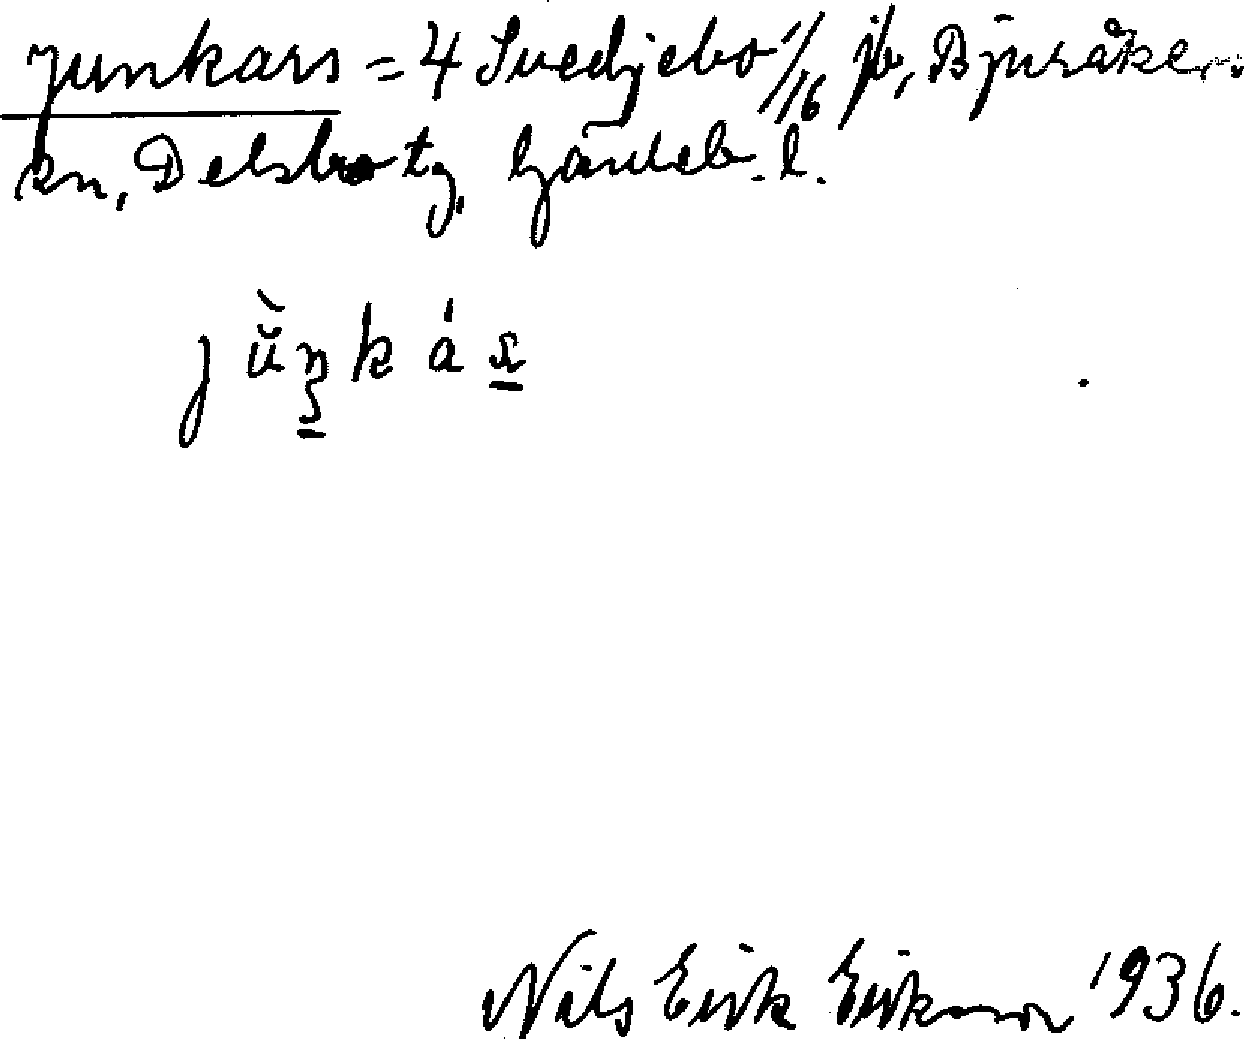 Junkars = 4 Svedjebo 1/16 jb, Bjuråkers
sn, Delsbo tg, Gävleb. l.
Nils Erik Eriksson 1936.